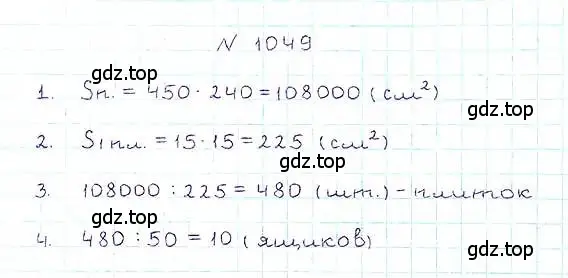 № 1049
gdz.top
1. Sп. = 450 · 240 = 108000 (см²)
gdz.top
2. S1 пл. = 15 · 15 = 225 (см²)
gdz.top
3. 108000 : 225 = 480 (шт.) - плиток
gdz.top
4. 480 : 50 = 10 (ящиков)
gdz.top